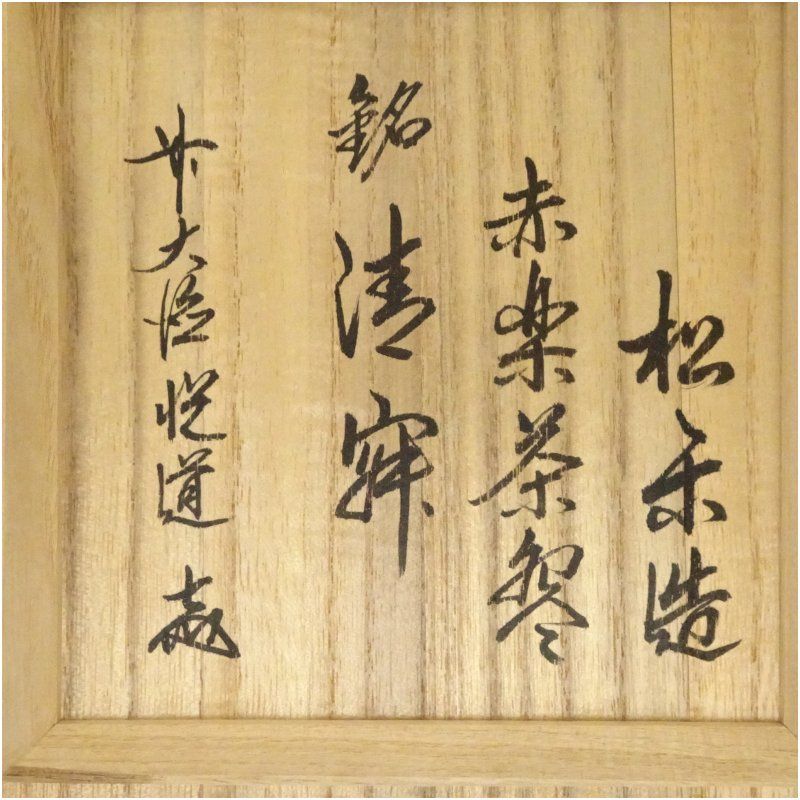 松楽造
赤楽茶盌
銘 清寂
前大徳悦道